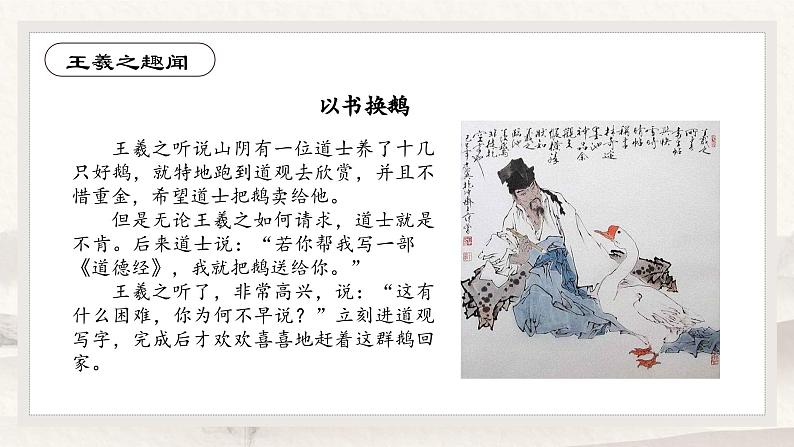 王羲之趣闻
以书换鹅
王羲之听说山阴有一位道士养了十几
只好鹅，就特地跑到道观去欣赏，并且不
惜重金，希望道士把鹅卖给他。
但是无论王羲之如何请求，道士就是
不肯。后来道士说：“若你帮我写一部
《道德经》，我就把鹅送给你。”
王羲之听了，非常高兴，说：“这有
什么困难，你为何不早说？”立刻进道观
写字，完成后才欢欢喜喜地赶着这群鹅回
家。